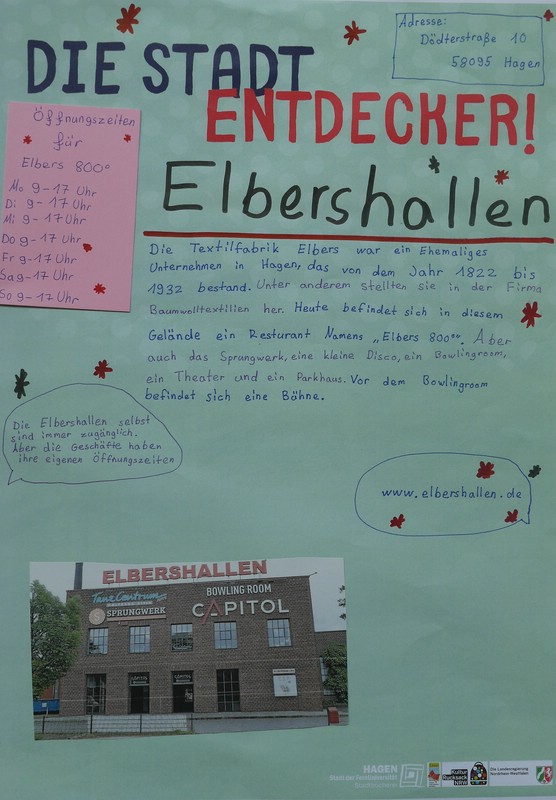 DIE STADT
ENTDECKER!
Adresse:
Dödterstraße 10
58095 Hagen
Elbershallen
Öffnungszeiten
für
Elbers 800°
Mo 9-17 Uhr
Di 9-17 Uhr
Mi 9-17 Uhr
Do 9-17 Uhr
Fr 9-17 Uhr
Sa 9-17 Uhr
So 9-17 Uhr
Die Textilfabrik Elbers war ein Ehemaliges
Unternehmen in Hagen, das von dem Jahr 1822 bis
1932 bestand. Unter anderem stellten sie in der Firma
Baumwolltextilien her. Heute befindet sich in diesem
Gelände ein Resturant Namens „Elbers 800°“. Aber
auch das Sprungwerk, eine kleine Disco, ein Bowlingroom,
ein Theater und ein Parkhaus. Vor dem Bowlingroom
befindet sich eine Böhne.
Die Elbershallen selbst
sind immer zugänglich.
Aber die Geschäfte haben
ihre eigenen Öffnungszeiten
www.elbershallen.de
ELBERSHALLEN
TanzCentrum
SPRUNGWERK
BOWLING ROOM
CAPITOL
HAGEN
Stadt der FernUniversität
Kultur
Rucksack
NRW
Die Landesregierung
Nordrhein-Westfalen